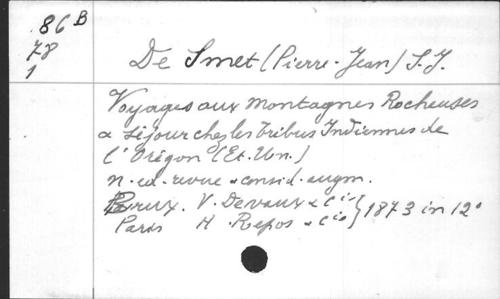 86 B
78
1
De Smet (Pierre-Jean) S.J.
Voyages aux Montagnes Rocheuses
& séjour chez les tribus Indiennes de
l'Orégon (Et. Un.)
n. ed. revue & consid. augm.
Brux. V. Devaux & Cie } 1873 in 12°
Paris H. Repos & Cie